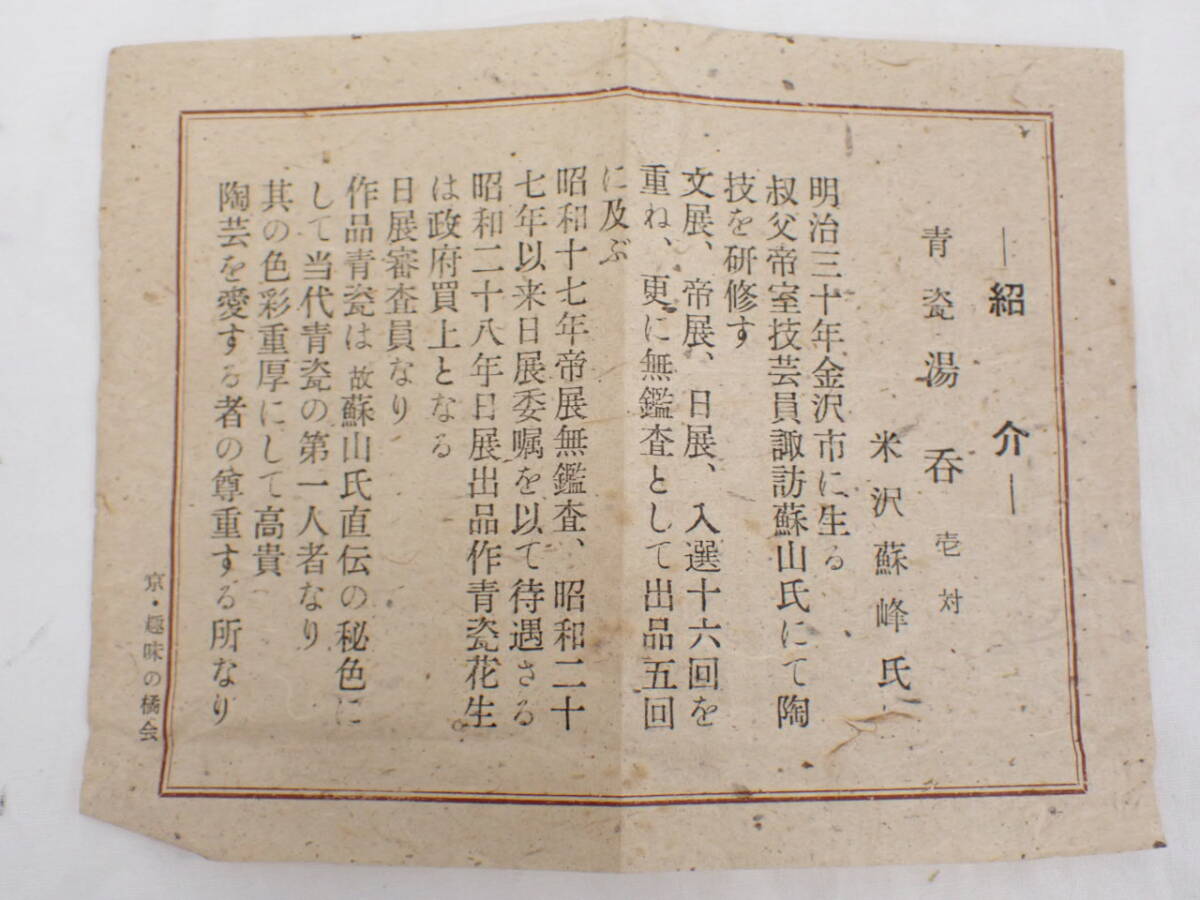 ―紹介―
青瓷湯呑 壱対
米沢蘇峰氏
明治三十年金沢市に生る
叔父帝室技芸員諏訪蘇山氏にて陶
技を研修す
文展、帝展、日展、入選十六回を
重ね、更に無鑑査として出品五回
に及ぶ
昭和十七年帝展無鑑査、昭和二十
七年以来日展委嘱を以て待遇さる
昭和二十八年日展出品作青瓷花生
は政府買上となる
日展審査員なり
作品青瓷は故蘇山氏直伝の秘色に
して当代青瓷の第一人者なり
其の色彩重厚にして高貴
陶芸を愛する者の尊重する所なり
京・趣味の橘会